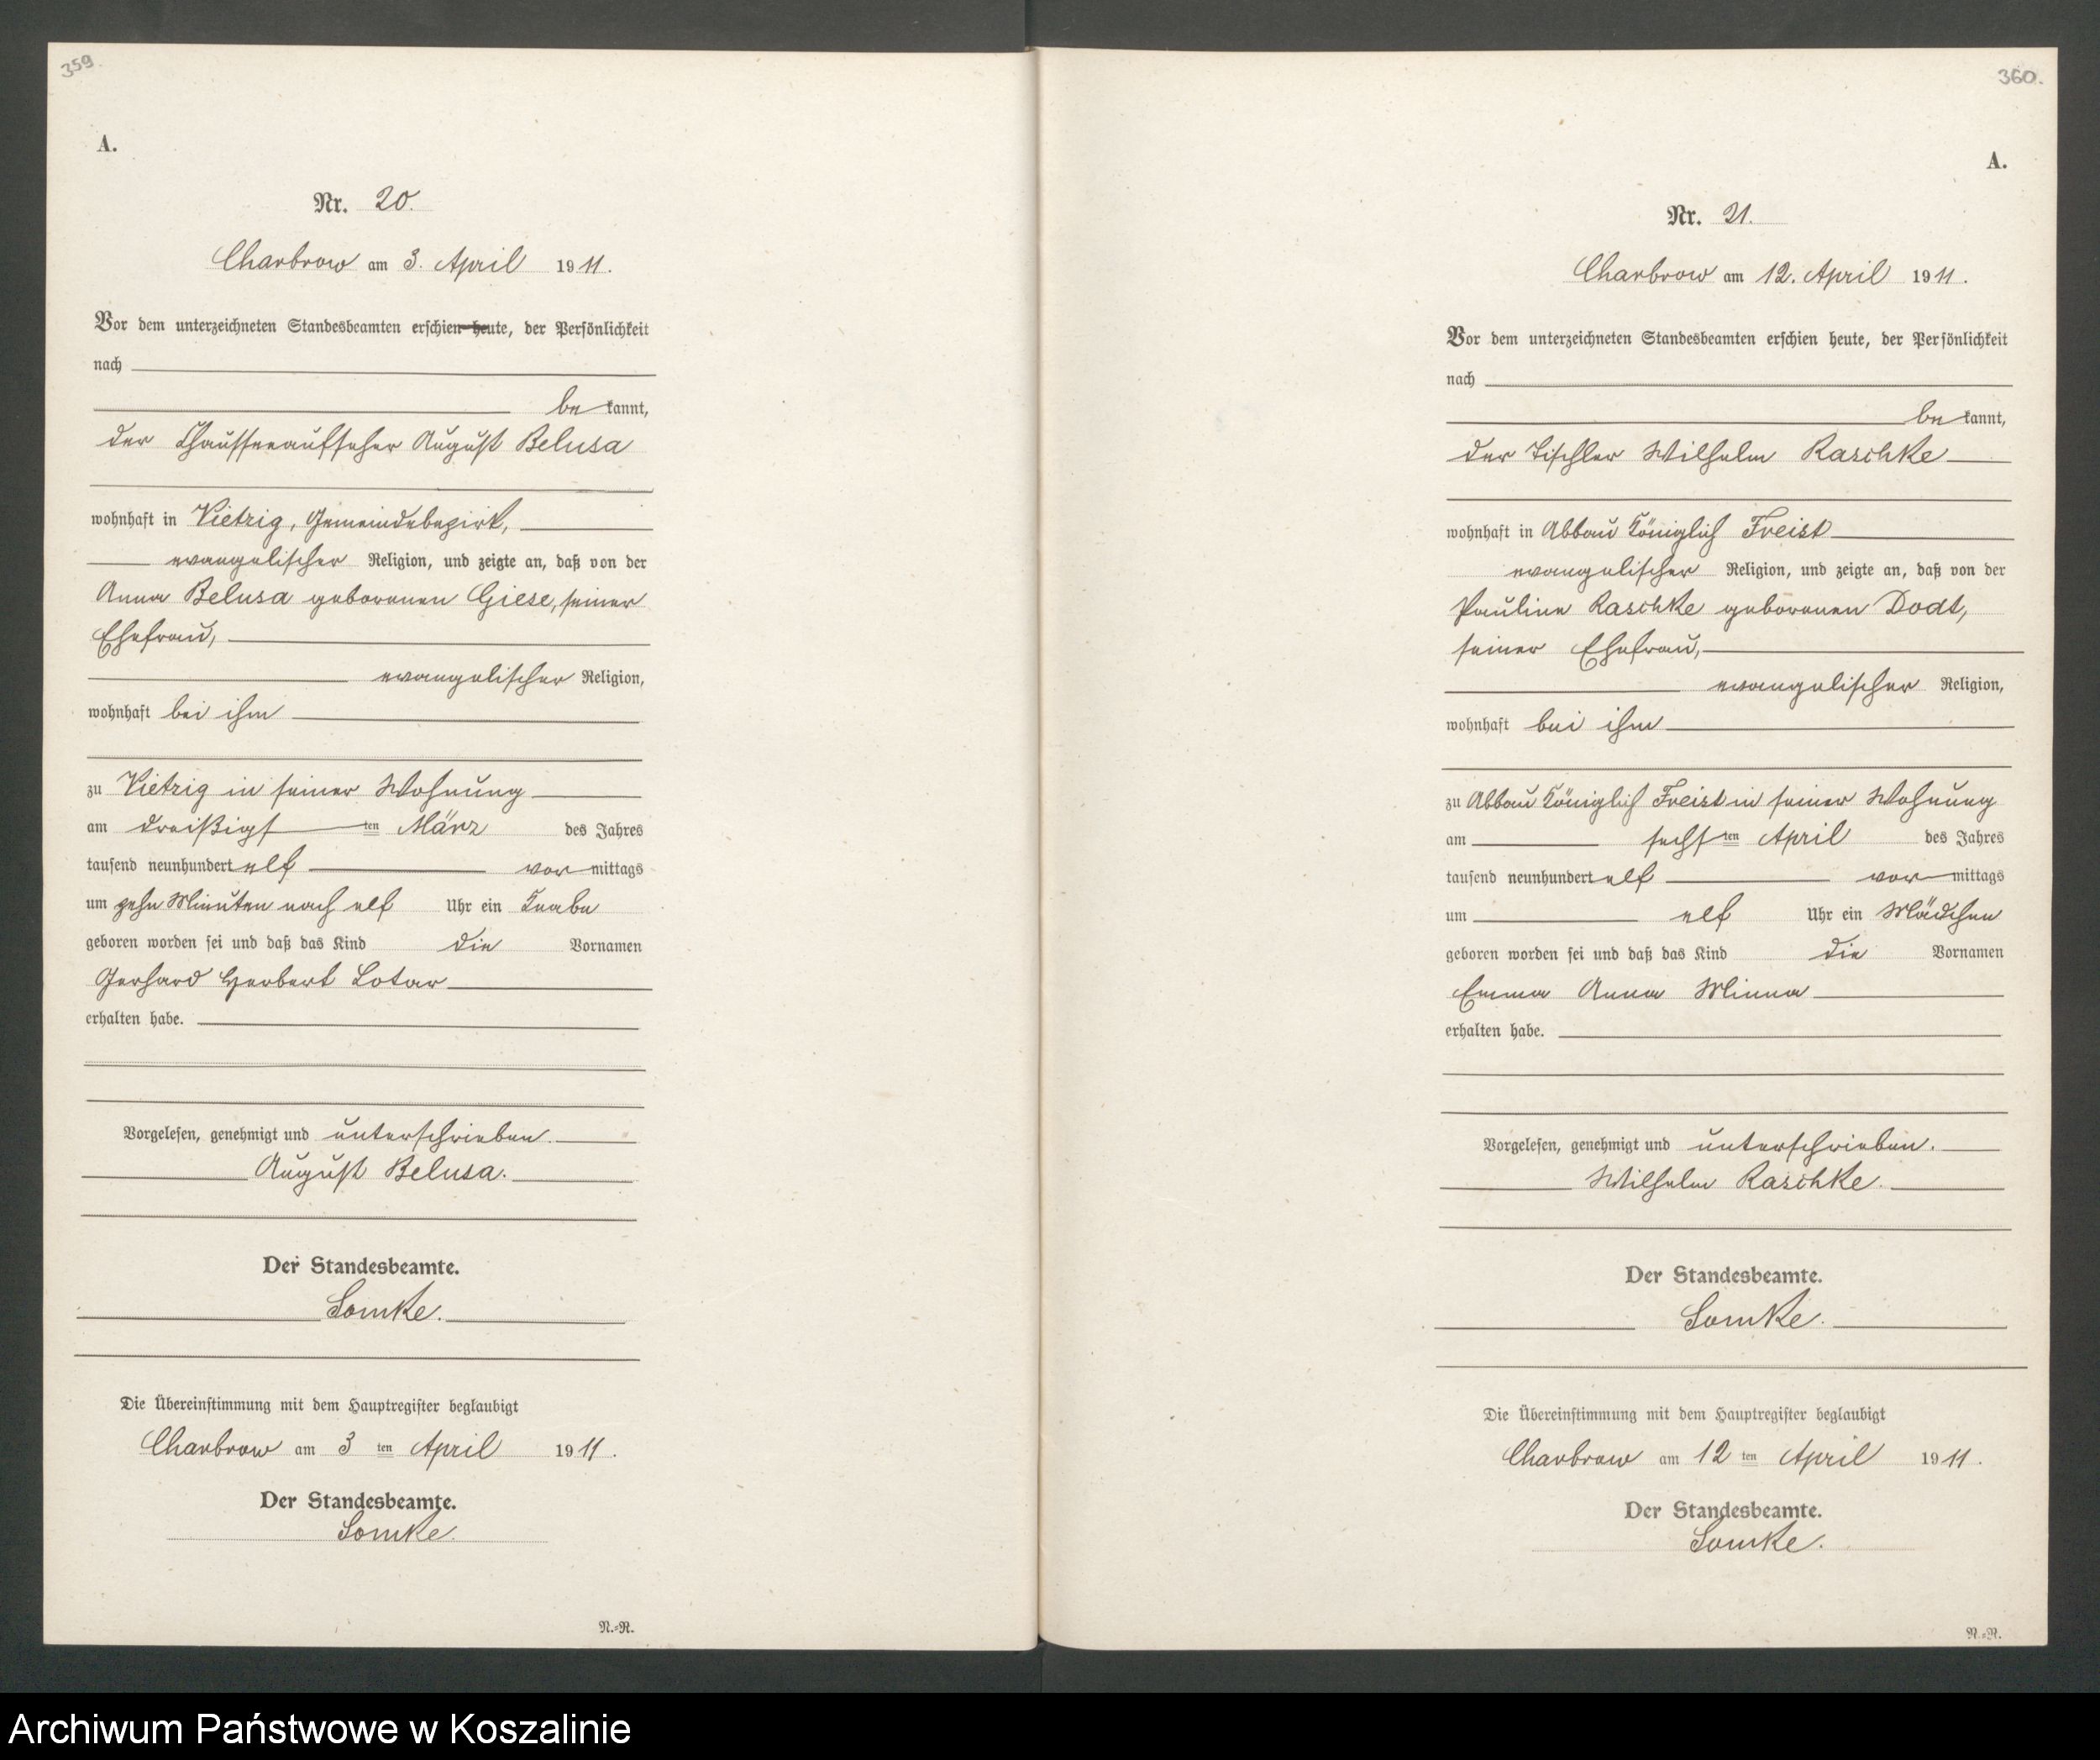 359.
A.
Nr. 20.
Charbrow am 3. April 1911.
Vor dem unterzeichneten Standesbeamten erschien heute, der Persönlichkeit
nach
be kannt,
der Chausseeaufseher August Belusa
wohnhaft in Vietzig, Gemeindebezirk,
evangelischer Religion, und zeigte an, daß von der
Anna Belusa geborenen Giese, seiner
Ehefrau,
evangelischer Religion,
wohnhaft bei ihm
zu Vietzig in seiner Wohnung
am dreißigsten März des Jahres
tausend neunhundert elf vormittags
um zehn Minuten nach elf Uhr ein Knabe
geboren worden sei und daß das Kind die Vornamen
Gerhard Herbert Lotar
erhalten habe.
Vorgelesen, genehmigt und unterschrieben.
August Belusa.
Der Standesbeamte.
Somke.
Die Übereinstimmung mit dem Hauptregister beglaubigt
Charbrow am 3 ten April 1911.
Der Standesbeamte.
Somke.
N.=R.
360.
A.
Nr. 21.
Charbrow am 12. April 1911.
Vor dem unterzeichneten Standesbeamten erschien heute, der Persönlichkeit
nach
be kannt,
der Tischler Wilhelm Raschke
wohnhaft in Abbau Königlich Freist
evangelischer Religion, und zeigte an, daß von der
Pauline Raschke geborenen Dodt,
seiner Ehefrau,
evangelischer Religion,
wohnhaft bei ihm
zu Abbau Königlich Freist in seiner Wohnung
am sechsten April des Jahres
tausend neunhundert elf vormittags
um elf Uhr ein Mädchen
geboren worden sei und daß das Kind die Vornamen
Emma Anna Minna
erhalten habe.
Vorgelesen, genehmigt und unterschrieben.
Wilhelm Raschke.
Der Standesbeamte.
Somke.
Die Übereinstimmung mit dem Hauptregister beglaubigt
Charbrow am 12 ten April 1911.
Der Standesbeamte.
Somke.
N.=R.
Archiwum Państwowe w Koszalinie